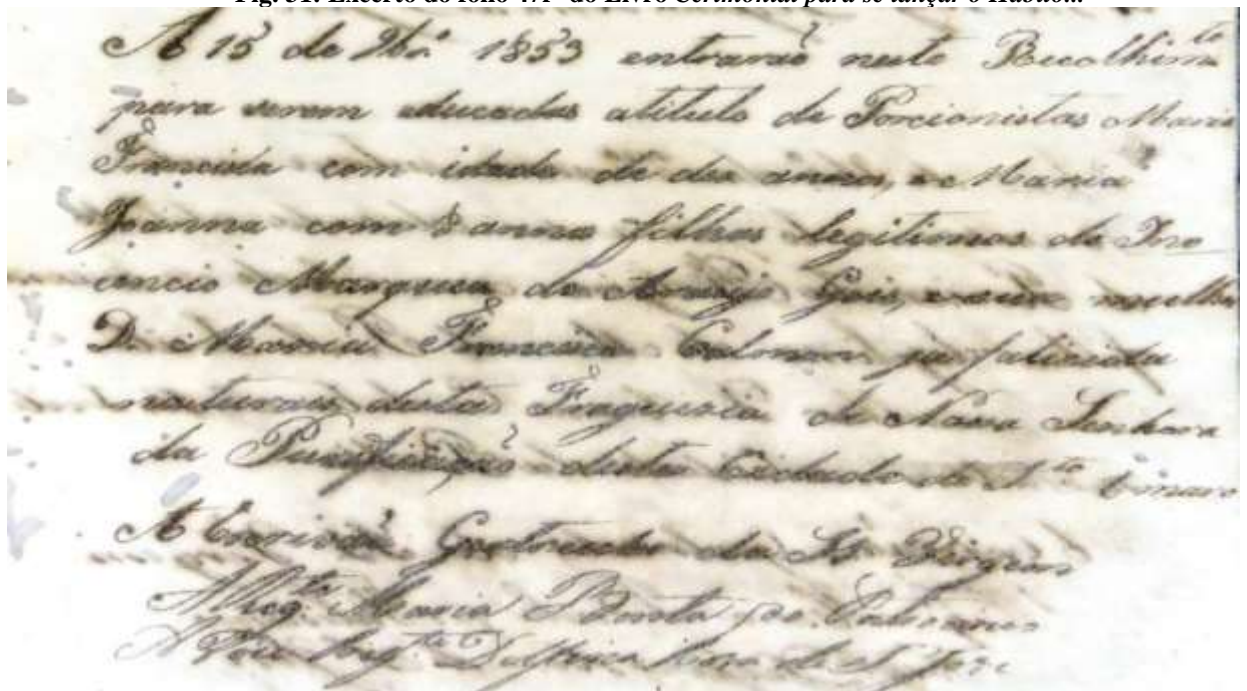 Fig. 31: Excerto do fólio 471º do Livro Cerimonial para se lançar o Hábito...
A 15 de 9br.º 1853 entrarão neste Recolhimto
para serem educadas atitulo de Porcionistas Maria
Francisca com idade de des annos, e Maria
Joanna com 8 annos filhas legitimas de Ino
cencio Marques de Araujo Gois, e sua mulher
D. Maria Francisca Calmon ja falecida
naturais desta Freguezia de Nossa Senhora
da Purificação desta Cidade de Sto Amaro
A Escrivã Gertrudes das Virgens
Maria Benta
A